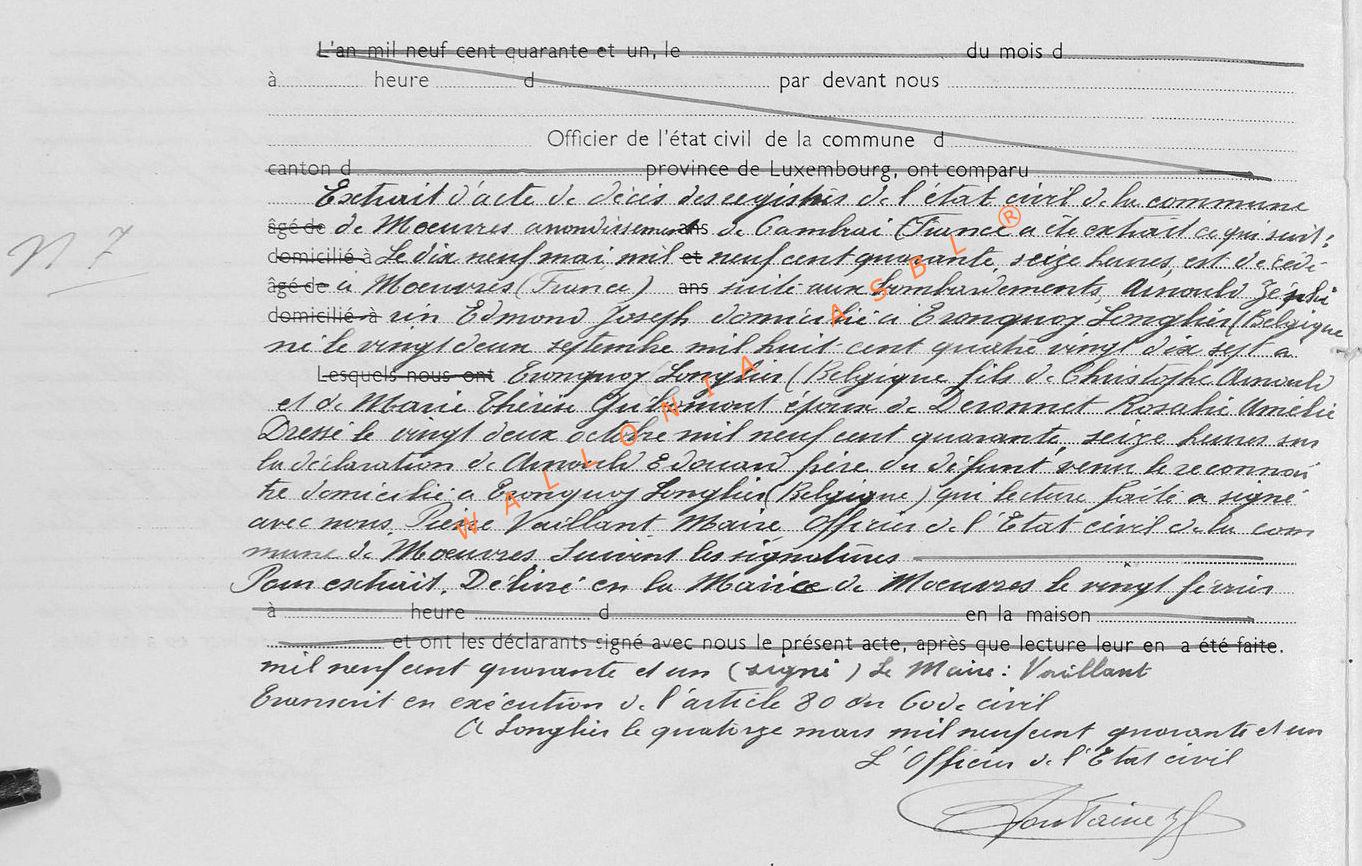 L'an mil neuf cent quarante et un, le du mois d
à heure d par devant nous
Officier de l'état civil de la commune d
canton d province de Luxembourg, ont comparu
Extrait d'acte de décès des registres de l'état civil de la commune
âgé de de Mœuvres arrondissement ans de Cambrai (France a été extrait ce qui suit:
N 7
domicilié à Le dix neuf mai, mil et neuf cent quarante, seize heures, est décédé
âgé de a Mœuvres (France) ans suite aux bombardements, Arnould Zéphi
domicilié à rin Edmond Joseph domicilié a Tronquoy Longlier (Belgique
né le vingt deux septembre mil huit cent quatre vingt dix sept a
Lesquels nous ont Tronquoy Longlier (Belgique fils de Christophe Arnould
et de Marie Thérèse époux de Deronnet Rosalie Amélie
Dressé le vingt deux octobre mil neuf cent quarante, seize heures sur
la déclaration de Arnould Edouard frère du défunt, venu le reconnaî
tre domicilié a Tronquoy Longlier (Belgique) qui lecture faite a signé
avec nous, Pierre Vaillant Maire Officier de l'Etat civil de la com
mune de Mœuvres Suivent les signatures
Pour extrait. Délivré en la Mairie de Mœuvres le vingt février
à heure d en la maison
et ont les déclarants signé avec nous le présent acte, après que lecture leur en a été faite.
mil neuf cent quarante et un (signé) Le Maire: Vaillant
Transcrit en exécution de l'article 80 du Code civil
A Longlier le quatorze mars mil neuf cent quarante et un
L'Officier de l'Etat civil
WALLONIA ASBL ®